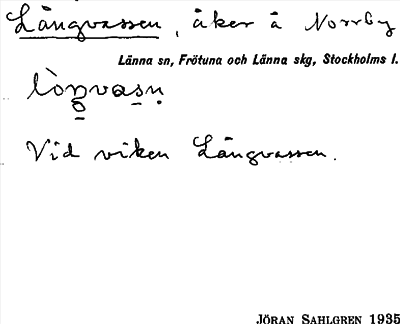 Långvassen, åker å Norrby
Länna sn, Frötuna och Länna skg, Stockholms l.
Vid viken Långvassen.
JÖRAN SAHLGREN 1935